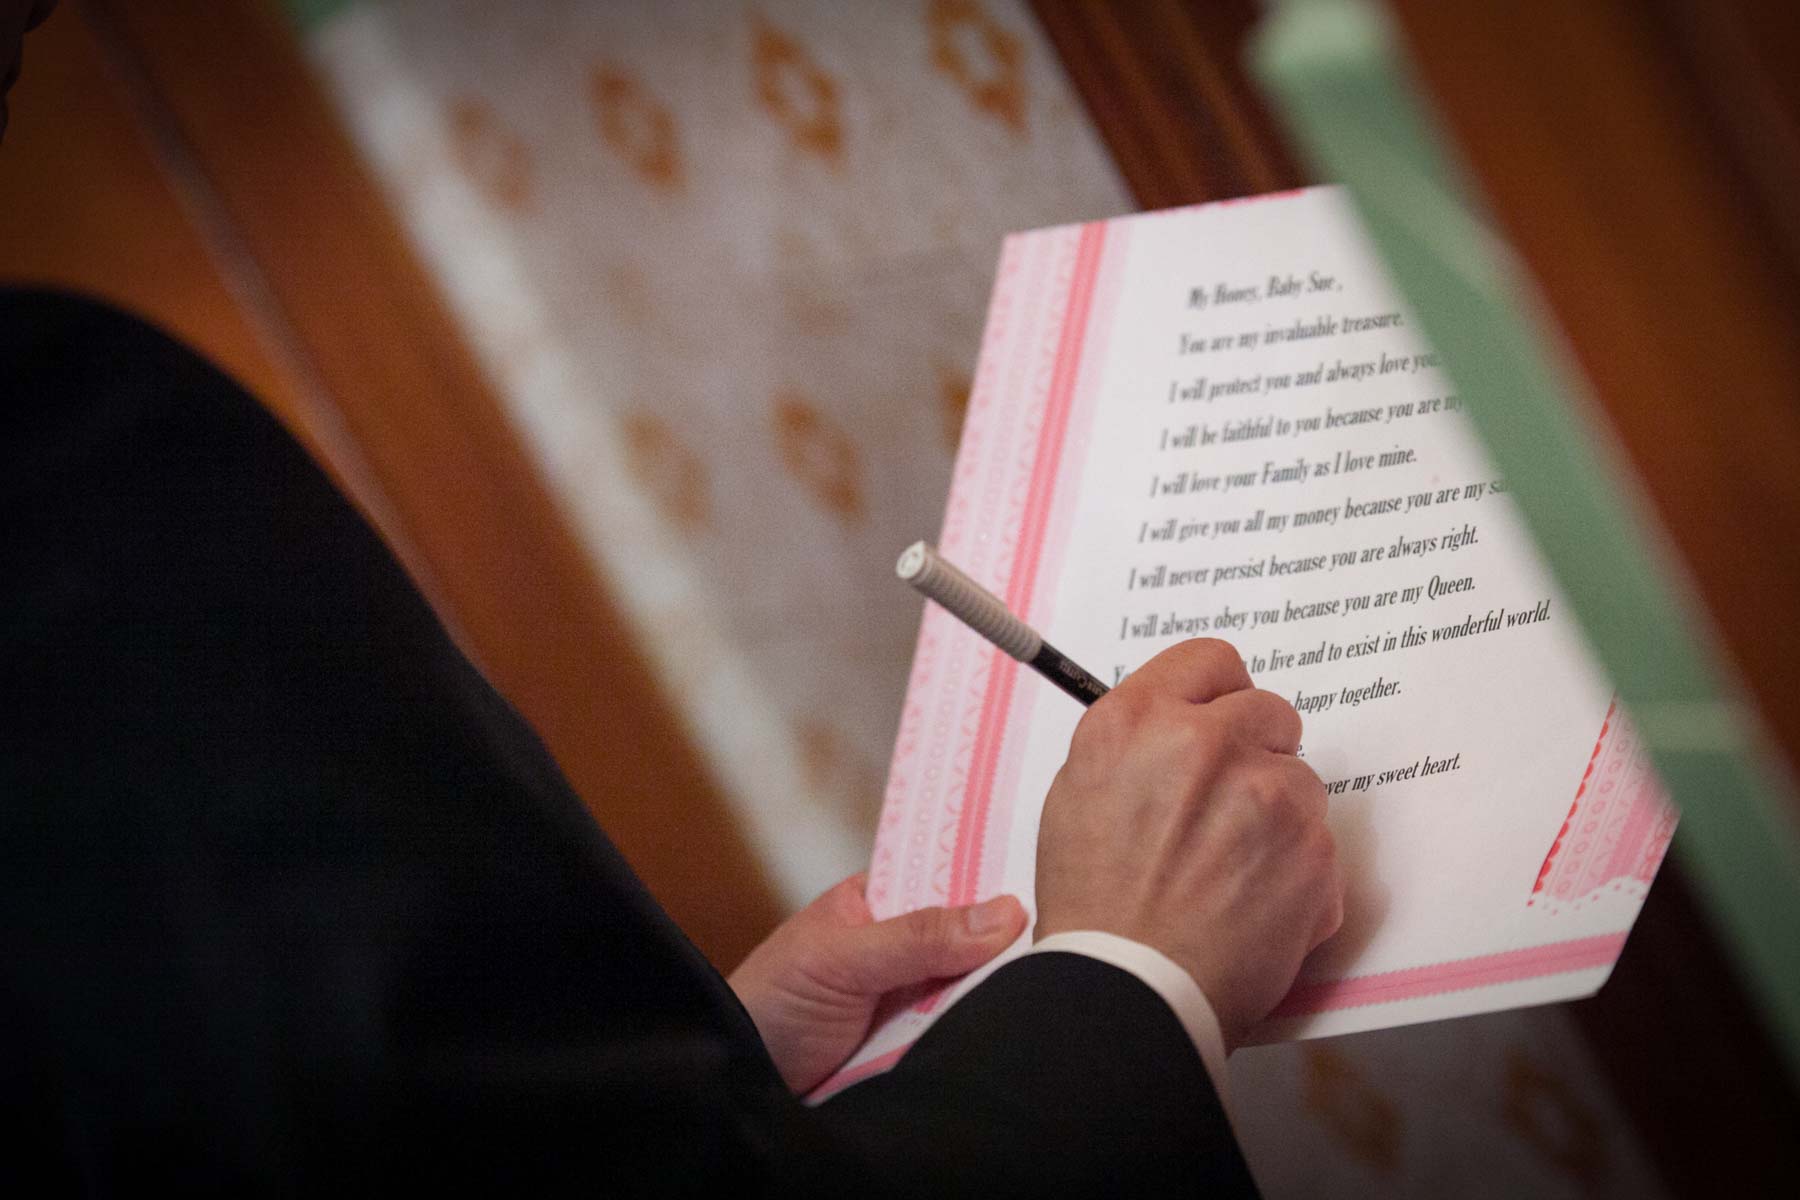 My Honey, Baby Sue,
You are my invaluable treasure.
I will protect you and always love you.
I will be faithful to you because you are my
I will love your Family as I love mine.
I will give you all my money because you are my
I will never persist because you are always right.
I will always obey you because you are my Queen.
to live and to exist in this wonderful world.
happy together.
my sweet heart.